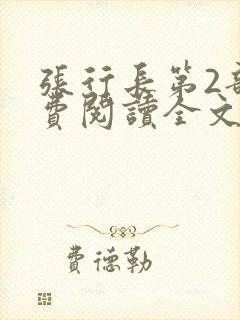 張行長第2部
費閱讀全文
費德勒